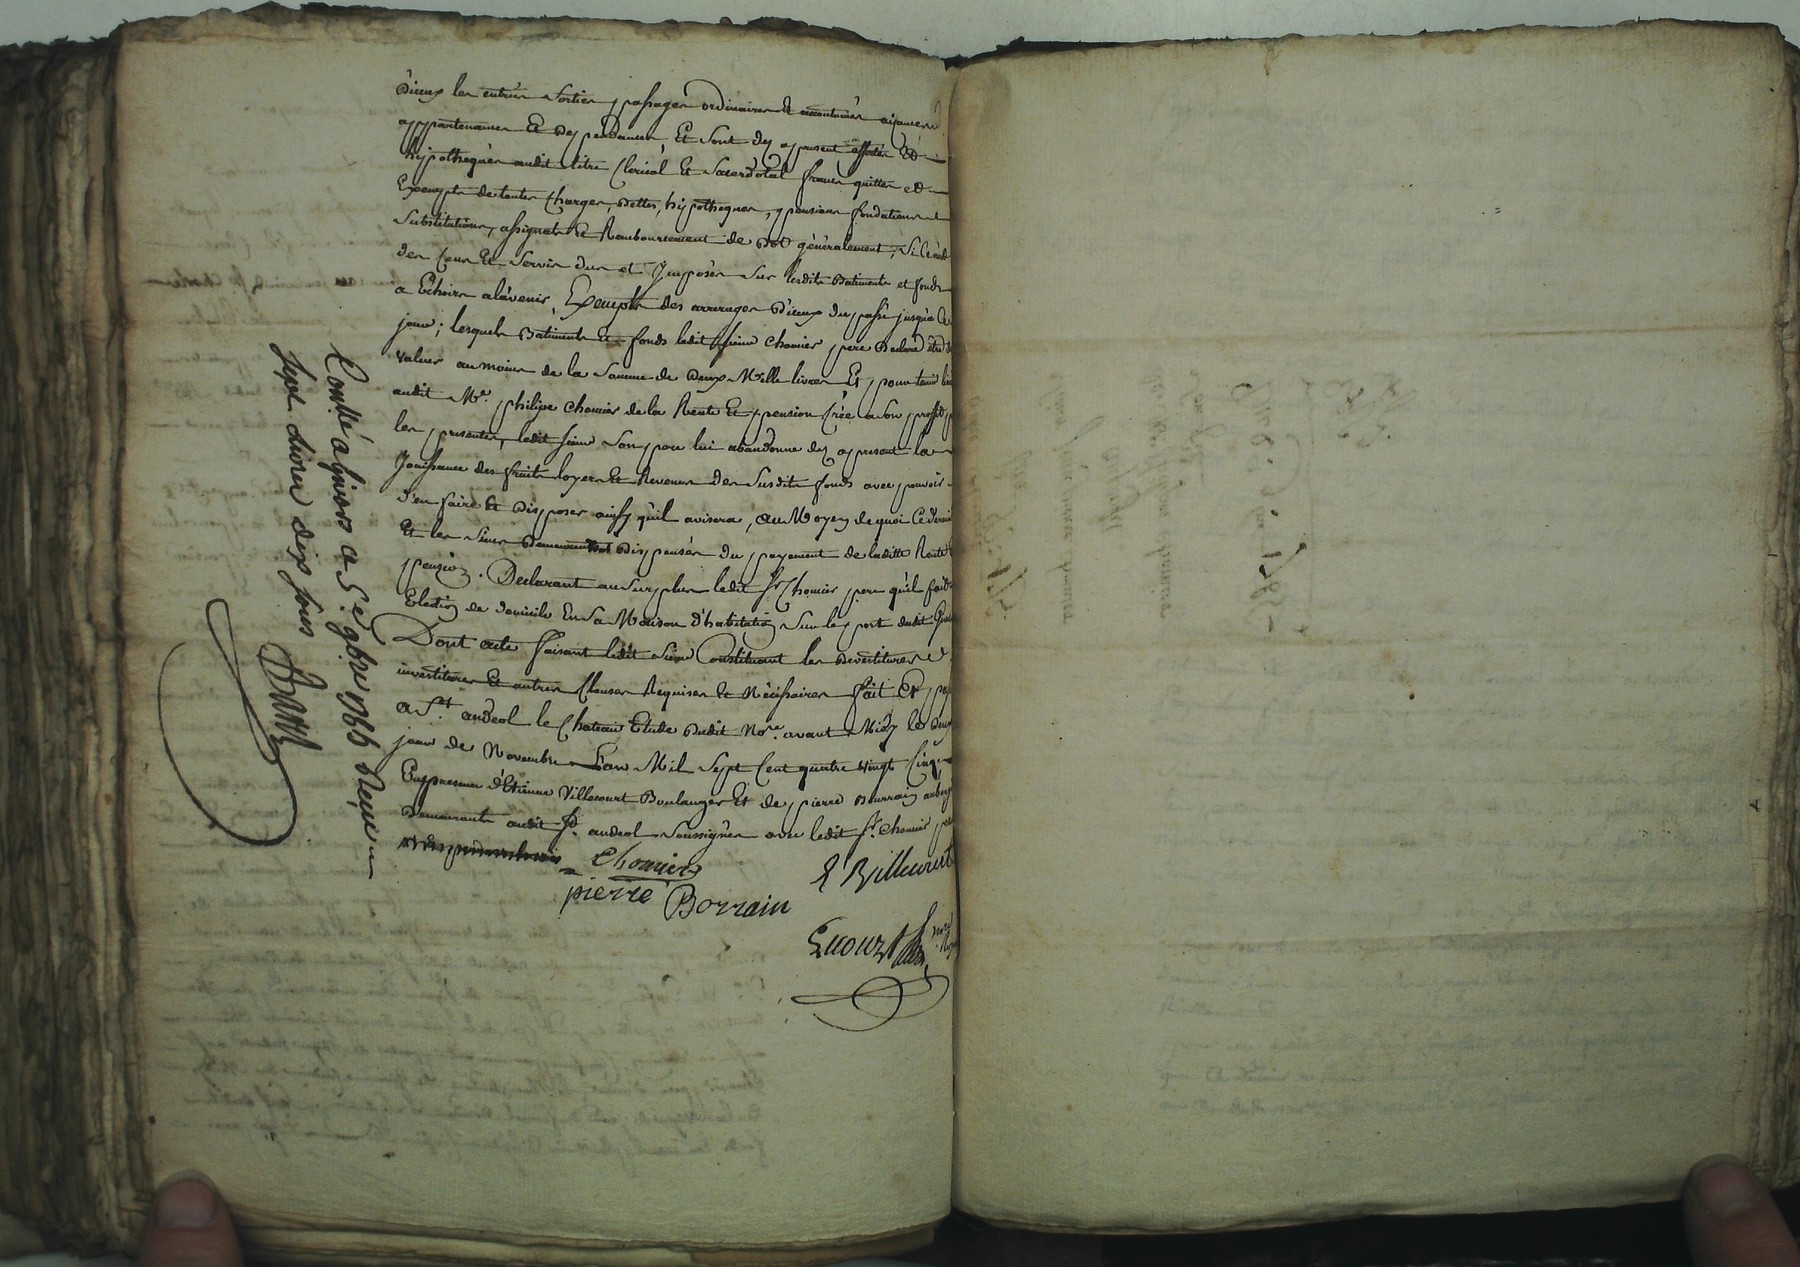 d'iceux les entrées sorties passages ordinaires et accoutumés aizances
appartenances Et dependances, Et sont dez apresent affectés Et
hipothequés audit titre Clerical Et Sacerdotal francs quittes et
Exempts de toutes Charges, dettes, hipotheques, pensions fondations
Substitutions, assignats Et Remboursement de dot généralement, Si Ce n'est
des Cens Et Servis dus et Imposés Sur lesdits Batiments et fonds
a Echoir alavenir, Exempts des arrerages d'iceux du passé jusqu'a Ce
jour; lesquels Batiments Et fonds ledit sieur Chomier pere Declare être de
valeur au moins de la Somme de Deux Mille livres Et pour tenir lieu
audit Me. philipe Chomier de la Rente Et pension Créé a Son proffit p
les presentes, ledit sieur Son pere lui abandonne dez apresent la
Jouissance des fruits loyers Et Revenus des Susdits fonds avec pouvoir
d'en faire Et Disposer ainsy qu'il avisera, au Moyen de quoi Ce dernier
Et les Siens Demeureront Dispensés du payement de laditte Rente
pension. Declarant au Surplus ledit Sr. Chomier pere qu'il fait
Election de domicile En Sa Maison d'habitation Sur le port dudit
Dont acte faisant ledit Sieur Constituant les devestitures
investitures Et autres Clauses Requises Et Nécessaires fait Et
a St. andeol le Chateau Etude dudit Nore. avant Midy le
jour de Novembre L'an Mil Sept Cent quatre vingt Cinq
En presence d'Etienne Villecourt Boulanger Et de pierre Bourrain
Demeurants audit St. andeol Soussignés avec ledit Sr. Chomier
Chomier
E Villecourt
pierre Borrain
Contlé a givors a 5.e 9bre 1785 Reçu
Sept livres dix sous